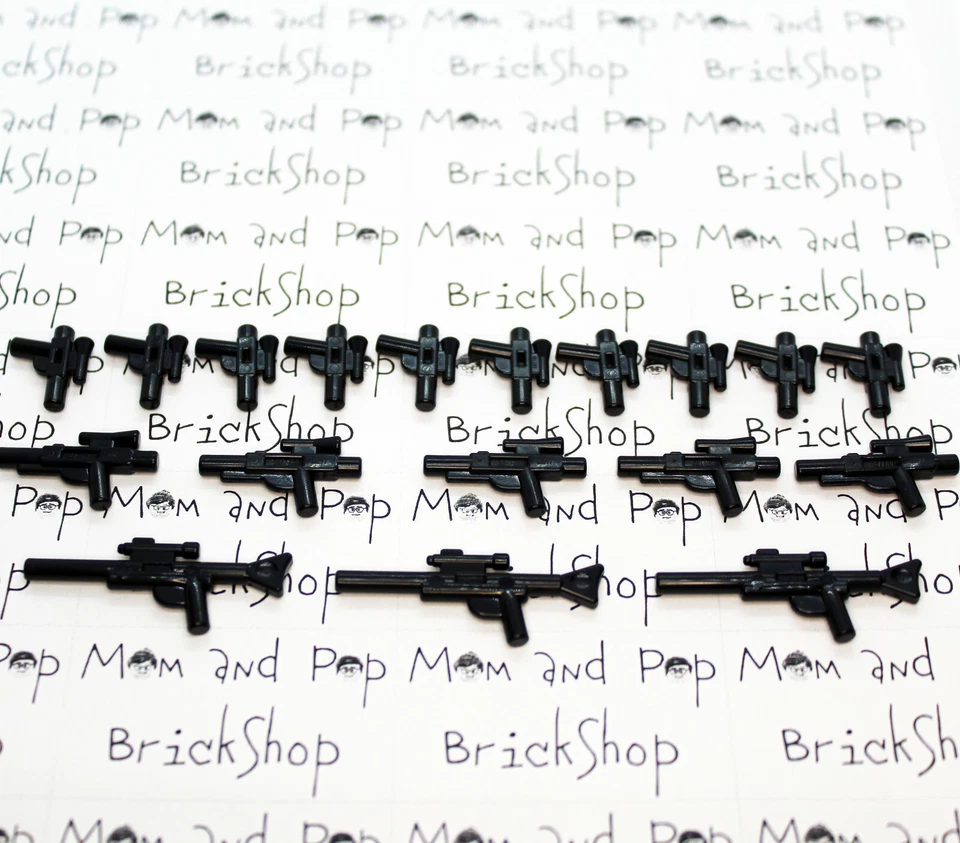 and Pop Mom and Pop Mom and Pop Mom and Pop
ckShop BrickShop BrickShop BrickShop
and Pop Mom and Pop Mom and Pop Mom and Pop
kShop BrickShop BrickShop BrickShop
nd Pop Mom and Pop Mom and Pop Mom and Pop
Shop BrickShop BrickShop BrickShop
hop BrickShop BrickShop BrickShop
Pop Mom and Pop Mom and Pop Mom and
Shop
Pop Mom and Pop Mom and Pop Mom and
BrickShop BrickShop BrickSh
Mom and Pop Mom and Pop Mom and